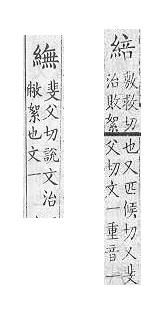 敷救切
治敗絮
也又匹候切又斐
父切文一重音一
斐父切說文治
敝絮也文一